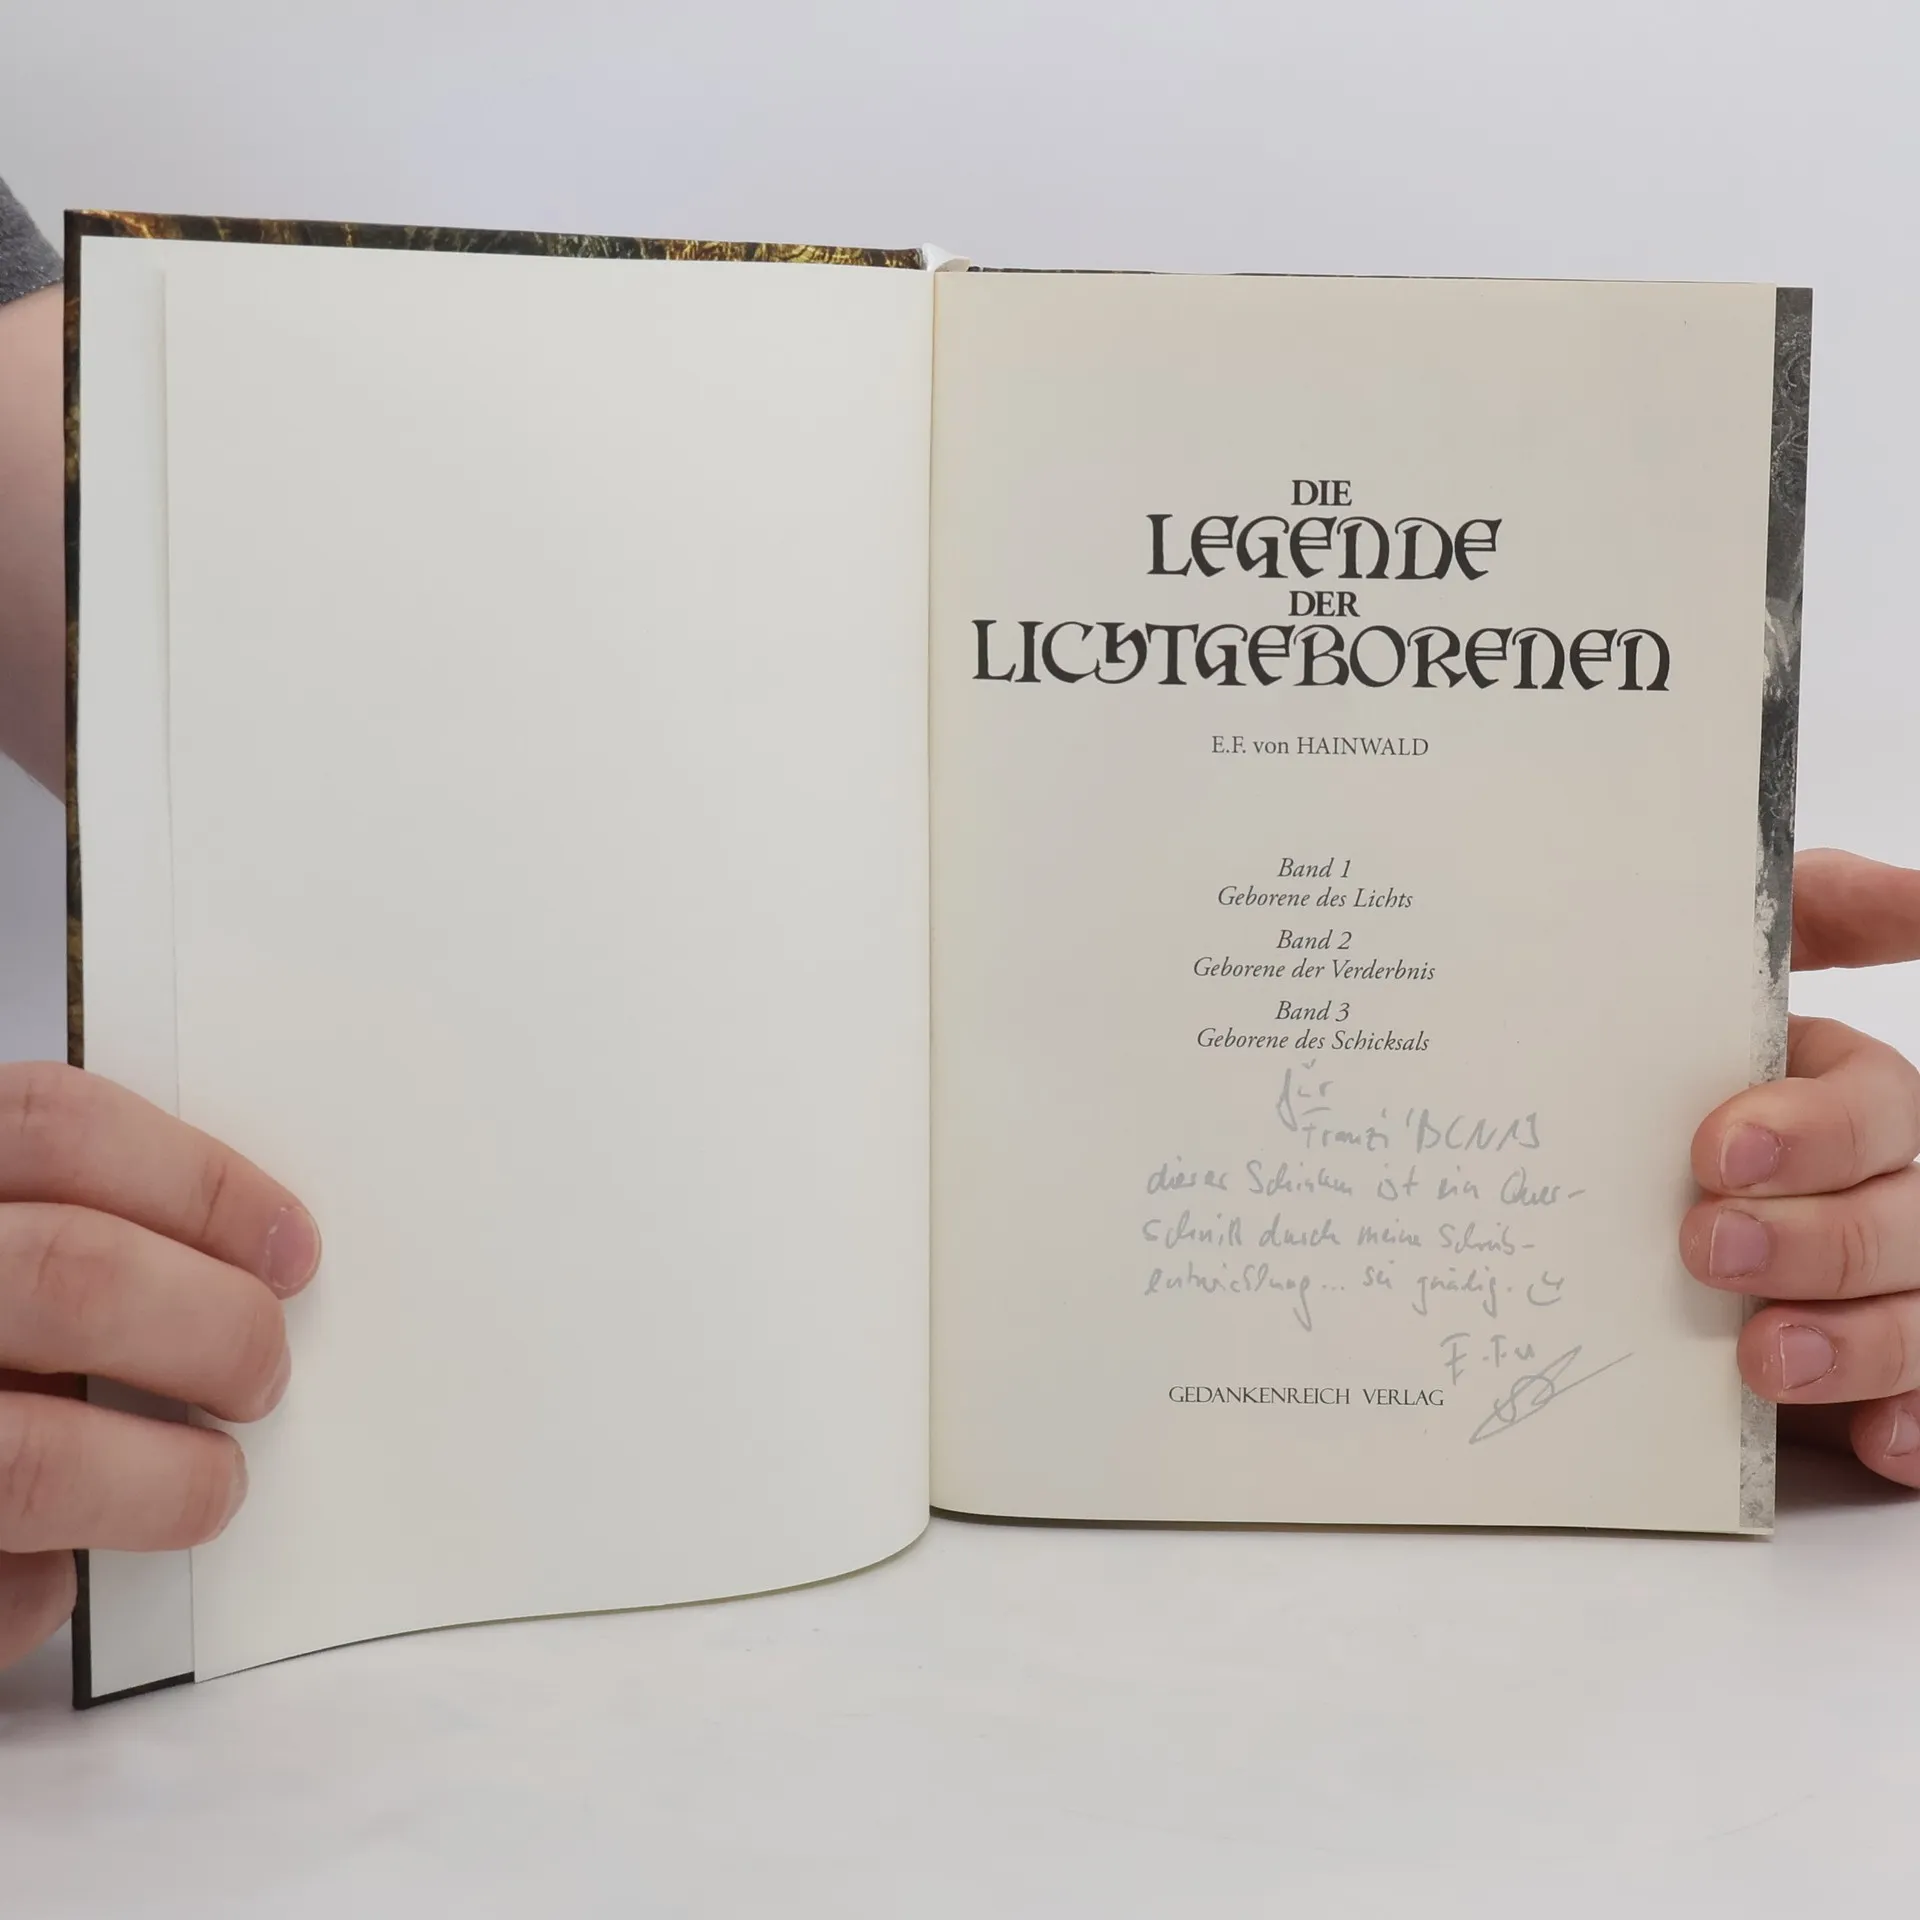 DIE
LEGENDE
DER
LICHTGEBORENEN
E.F. von HAINWALD
Band 1
Geborene des Lichts
Band 2
Geborene der Verderbnis
Band 3
Geborene des Schicksals
für
Franzi
dieser Schinken ist ein Quer-
schnitt durch meine Schreib-
entwicklung... sei gnädig.
E.F.v
GEDANKENREICH VERLAG